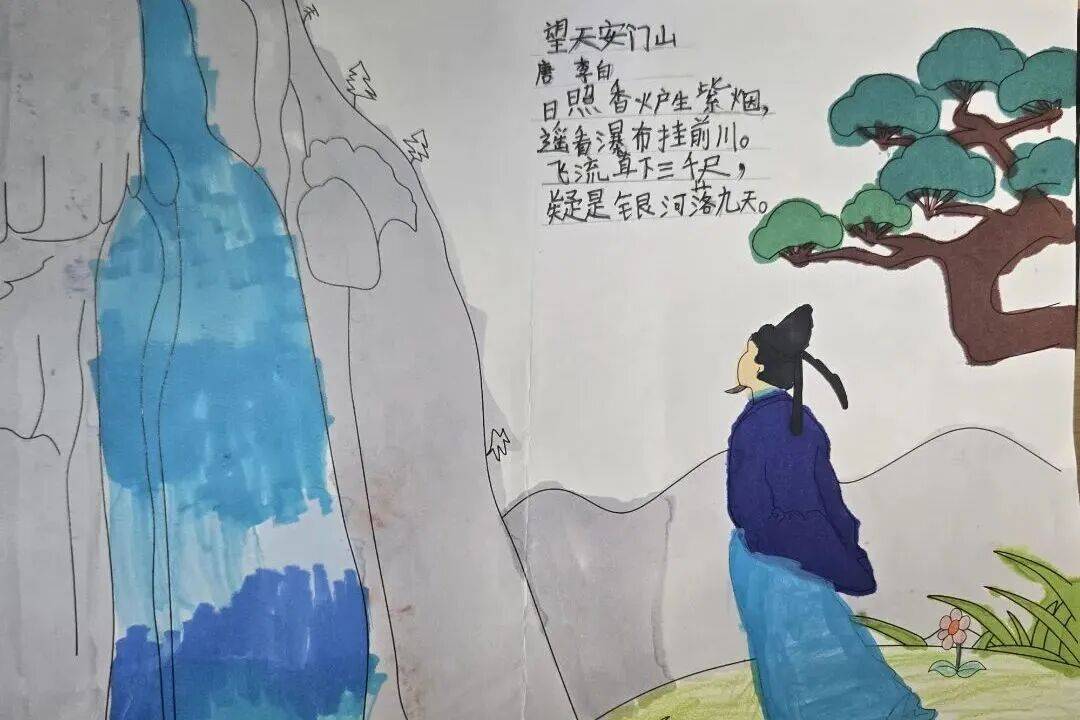 望天安门山
唐 李白
日照香火炉生紫烟，
遥看瀑布挂前川。
飞流直下三千尺，
疑是银河落九天。